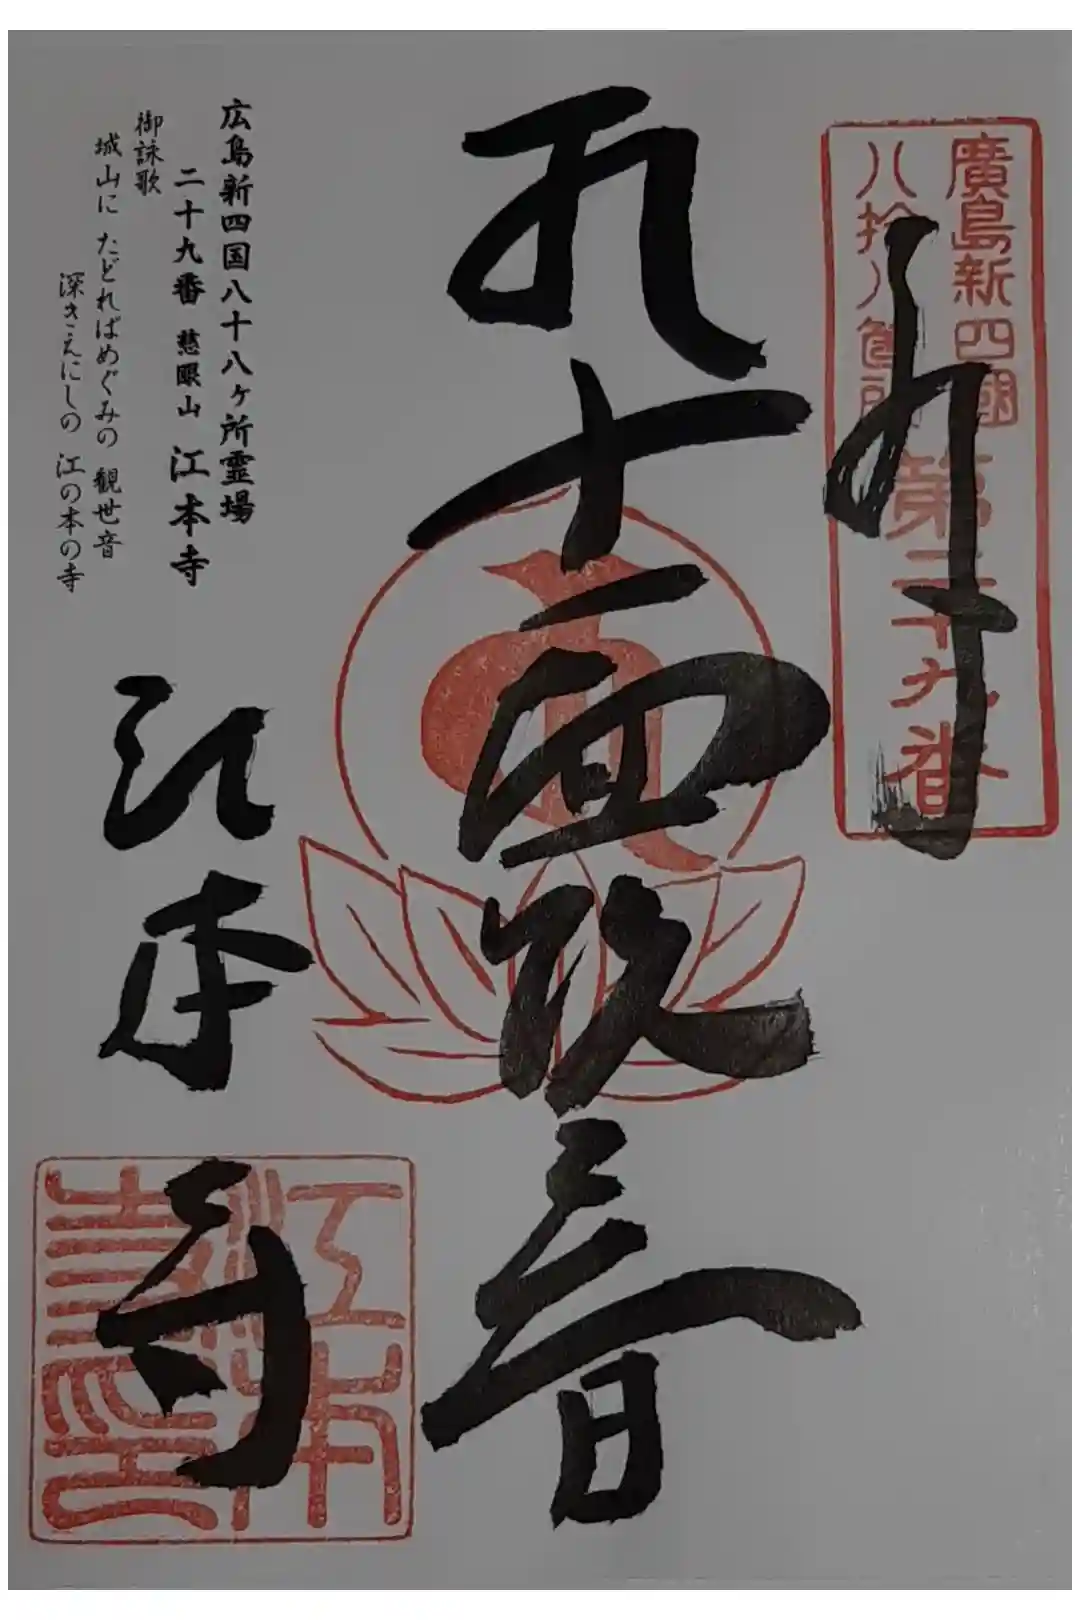 廣島新四國
八拾八箇所
第二十九番
奉拝
十一面観音
江本寺
江本寺印
広島新四国八十八ヶ所霊場
二十九番 慈眼山 江本寺
御詠歌
城山に たどればめぐみの 観世音
深きえにしの 江の本の寺